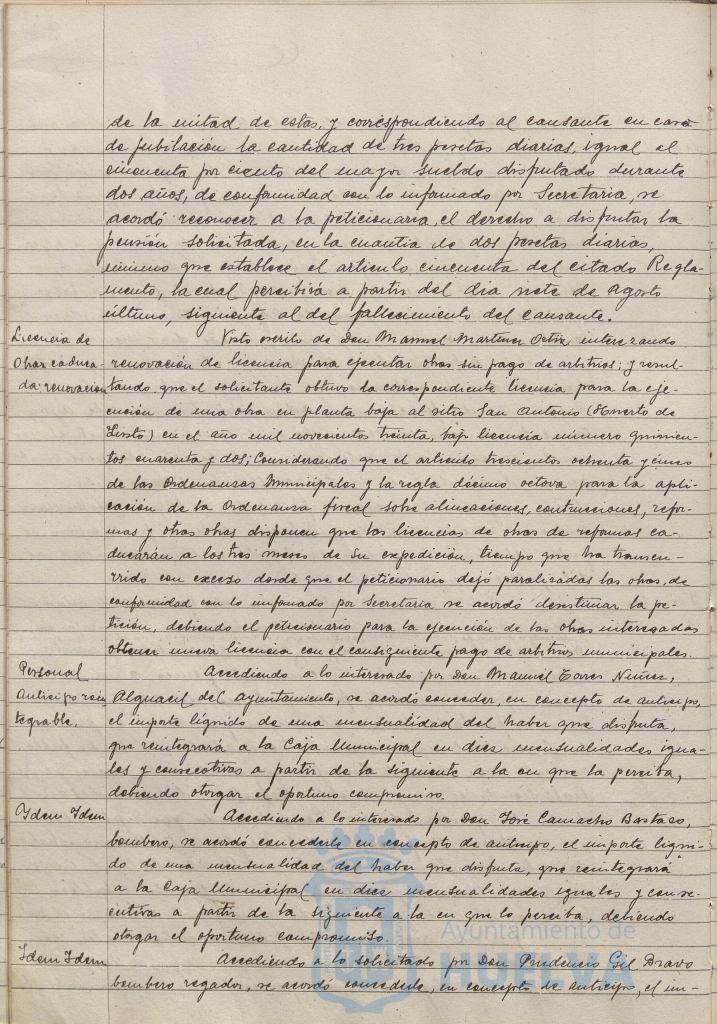 de la mitad de estas, y correspondiendo al causante en caso
de jubilación la cantidad de tres pesetas diarias, igual al
cincuenta por ciento del mayor sueldo disfrutado durante
dos años, de conformidad con lo informado por Secretaria, se
acordó reconocer a la peticionaria, el derecho a disfrutar la
pensión solicitada, en la cuantia de dos pesetas diarias,
minimo que establece el articulo cincuenta del citado Regla-
mento, la cual percibirá a partir del dia siete de Agosto
último, siguiente al del fallecimiento del causante.
Licencia de
Obras caduca-
da: renovacion
Visto escrito de Don Manuel Martinez Ortiz interezando
renovación de licencia para ejecutar obras sin pago de arbitrios; y resul-
tando, que el solicitante obtuvo la correspondiente licencia para la eje-
cución de una obra en planta baja al sitio San Antonio (Huerto de
) en el año mil novecientos treinta, bajo licencia número quinien-
tos cuarenta y dos; Considerando que el articulo trescientos ochenta y cinco
de las Ordenanzas Municipales y la regla décimo octava para la apli-
cación de la Ordenanza fiscal sobre alineaciones, contrucciones, refor-
mas y otras obras disponen que las licencias de obras de reformas ca-
ducarán a los tres meses de su expedición, tiempo que ha transcu-
rrido con exceso desde que el peticionario dejó paralizadas las obras, de
conformidad con lo informado por Secretaria se acordó desestimar la pe-
tición, debiendo el peticionario para la ejecución de las obras interezadas
obtener nueva licencia con el consiguiente pago de arbitrios municipales.
Personal
Anticipo rein
tegrable.
Accediendo a lo interezado por Don Manuel Torres Nuñez,
Alguacil del Ayuntamiento, se acordó conceder, en concepto de anticipo,
el importe líquido de una mensualidad del haber que disfruta,
que reintegrará a la Caja Municipal en diez mensualidades igua-
les y consecotivas a partir de la siguiente a la en que la perciba,
debiendo otorgar el oportuno compromiso.
Idem Idem
Accediendo a lo interezado por Don José Camacho Bastaco,
bombero, se acordó concederle en concepto de anticipo, el importe líqui-
do de una mensualidad del haber que disfruta, que reintegrará
a la Caja Municipal en diez mensualidades iguales y conse-
cutivas a partir de la siguiente a la en que lo perciba, debiendo
otorgar el oportuno compromiso.
Idem Idem
Accediendo a lo solicitado por Don Prudencio Gil Bravo
bombero regador, se acordó concederle, en concepto de anticipo, el im-
Ayuntamiento de